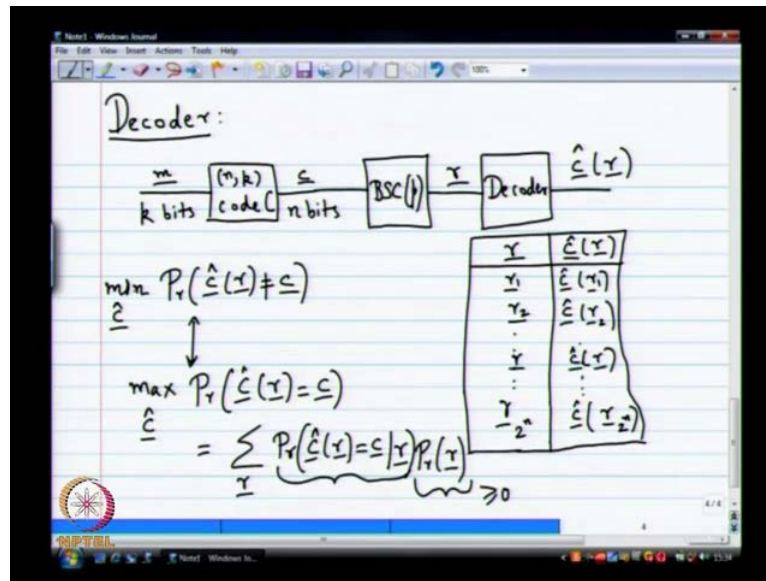 Note1 - Windows Journal
File Edit View Insert Actions Tools Help
100%
Decoder:
m (n,k) c r ĉ(r)
k bits code C n bits BSC(p) Decoder
r ĉ(r)
r₁ ĉ(r₁)
r₂ ĉ(r₂)
⋮ ⋮
r ĉ(r)
⋮ ⋮
r_{2ⁿ} ĉ(r_{2ⁿ})
min Pr(ĉ(r) ≠ c)
ĉ
↕
max Pr(ĉ(r) = c)
ĉ
= Σ Pr(ĉ(r) = c | r) Pr(r)
r ≥0
4/4
4
NPTEL
Note1 - Windows Jo...
15:34